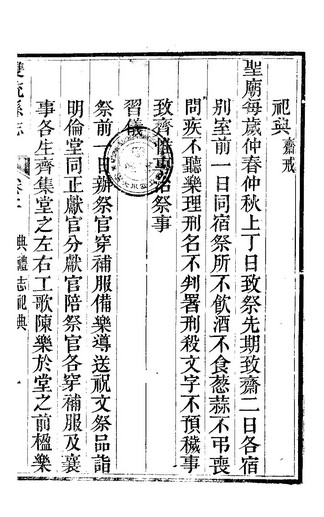 祀典 齋戒
聖廟每歲仲春仲秋上丁日致祭先期致齋二日各宿
別室前一日同宿祭所不飲酒不食葱蒜不弔喪
問疾不聽樂理刑名不判署刑殺文字不預穢事
致齊惟專治祭事
習儀
祭前一日辦祭官穿補服備樂導送祝文祭品詣
明倫堂同正獻官分獻官陪祭官各穿補服及襄
事各生齊集堂之左右工歌陳樂於堂之前楹樂
雙流縣志 典禮志祀典